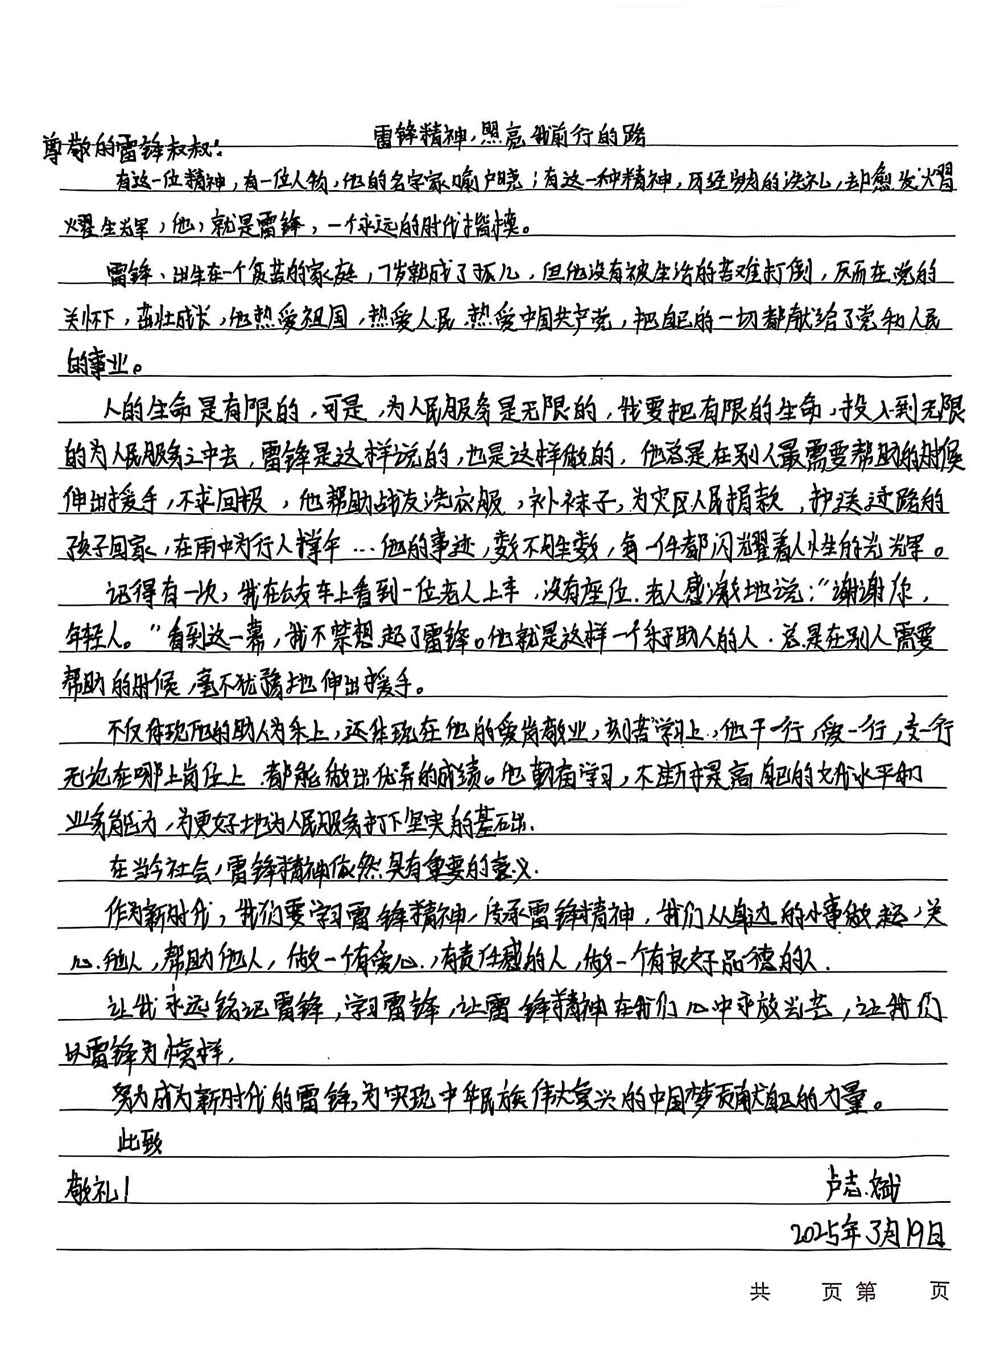 雷锋精神,照亮我前行的路
尊敬的雷锋叔叔:
有这一位精神,有一位人物,他的名字家喻户晓;有这一种精神,历经岁月的洗礼,却愈发熠
耀生辉,他,就是雷锋,一个永远的时代楷模。
雷锋、出生在一个贫苦的家庭,7岁就成了孤儿,但他没有被生活的苦难打倒,反而在党的
关怀下,茁壮成长,他热爱祖国,热爱人民.热爱中国共产党,把自己的一切都献给了党和人民
的事业。
人的生命是有限的,可是,为人民服务是无限的,我要把有限的生命,投入到无限
的为人民服务之中去,雷锋是这样说的,也是这样做的,他总是在别人最需要帮助的时候
伸出援手,不求回报,他帮助战友洗衣服,补袜子,为灾区人民捐款,护送过路的
孩子回家,在雨中为行人撑伞…他的事迹,数不胜数,每一件都闪耀着人性的光辉。
记得有一次,我在公交车上看到一位老人上车,没有座位.老人感激地说:“谢谢你,
年轻人。”看到这一幕,我不禁想起了雷锋。他就是这样一个乐于助人的人.总是在别人需要
帮助的时候,毫不犹豫地伸出援手。
不仅体现他的助人为乐上,还体现在他的爱岗敬业,刻苦学习上,他干一行,爱一行,专一行
无论在哪个岗位上.都能做出优异的成绩。他勤奋学习,不断提高自己的文化水平和
业务能力,为更好地为人民服务打下坚实的基础.
在当今社会,雷锋精神依然具有重要的意义.
作为新时代,我们要学习雷锋精神,传承雷锋精神,我们从身边的小事做起,关
心.他人,帮助他人,做一个有爱心.,有责任感的人,做一个有良好品德的人.
让我永远铭记雷锋,学习雷锋,让雷锋精神在我们心中永放光芒,让我们
以雷锋为榜样,
努力成为新时代的雷锋,为实现中华民族伟大复兴的中国梦贡献自己的力量。
此致
敬礼!
卢志斌
2025年3月19日
共 页 第 页